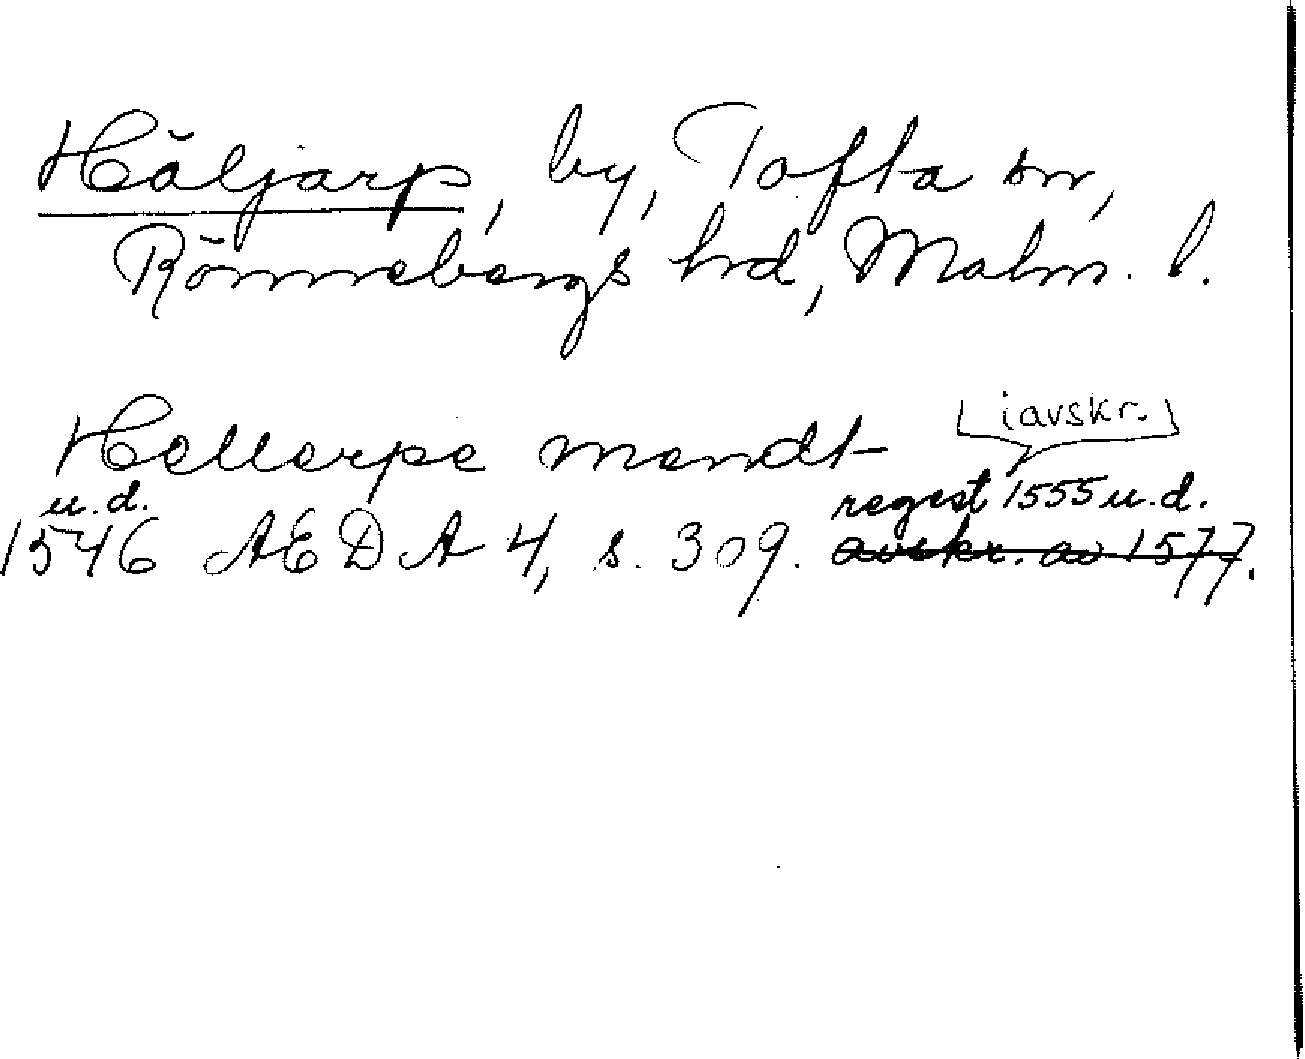 Häljarp, by, Tofta sn,
Rönnebergs hrd, Malm. l.
Hellerpe mendt
i avskr.
u.d.
regest 1555 u.d.
1546 AEDA 4, s. 309. avskr. av 1577.